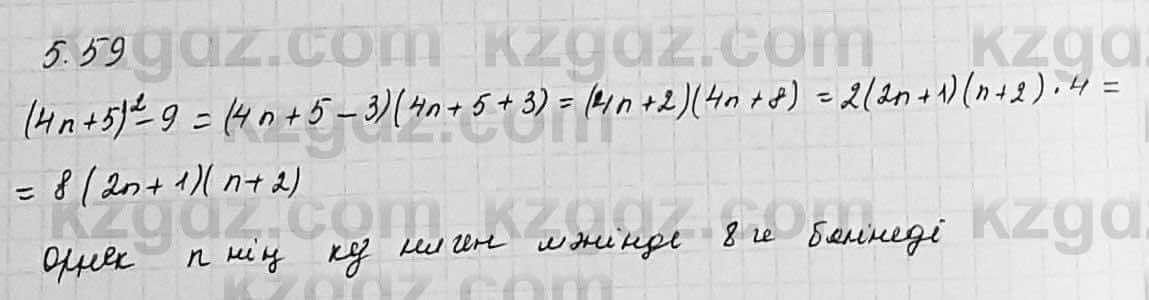 5.59
(4n+5)²-9 = (4n+5-3)(4n+5+3) = (4n+2)(4n+8) = 2(2n+1)(n+2)·4 =
= 8(2n+1)(n+2)
Өрнек n нің кез келген мәнінде 8 ге бөлінеді
kzgdz.com kzgdz.com kzgdz
kzgdz.com
kzgdz.com kzgdz.com kzgdz
kzgdz.com